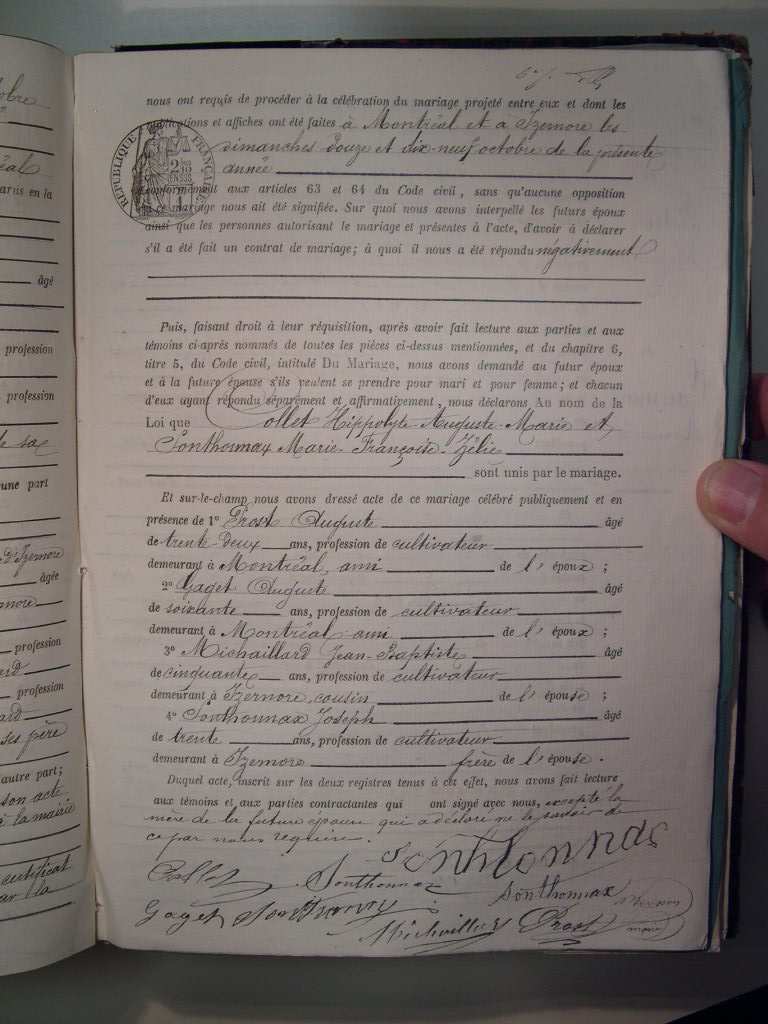 obre
éal
arus en la
âgé
profession
profession
une part
D'Izernore
âgée
profession
profession
ses père
autre part;
son acte
à la mairie
certificat
par la
nous ont requis de procéder à la célébration du mariage projeté entre eux et dont les
publications et affiches ont été faites à Montréal et à Izernore les
dimanches douze et dix-neuf octobre de la présente
année
RÉPUBLIQUE FRANÇAISE
conformément aux articles 63 et 64 du Code civil, sans qu'aucune opposition
à ce mariage nous ait été signifiée. Sur quoi nous avons interpellé les futurs époux
ainsi que les personnes autorisant le mariage et présentes à l'acte, d'avoir à déclarer
s'il a été fait un contrat de mariage; à quoi il nous a été répondu négativement
Puis, faisant droit à leur réquisition, après avoir fait lecture aux parties et aux
témoins ci-après nommés de toutes les pièces ci-dessus mentionnées, et du chapitre 6,
titre 5, du Code civil, intitulé Du Mariage, nous avons demandé au futur époux
et à la future épouse s'ils veulent se prendre pour mari et pour femme; et chacun
d'eux ayant répondu séparément et affirmativement, nous déclarons Au nom de la
Loi que Collet Hippolyte Auguste Marie et
Sonthonnax Marie Françoise Zélie
sont unis par le mariage.
Et sur-le-champ nous avons dressé acte de ce mariage célébré publiquement et en
présence de 1° Prost Auguste âgé
de trente deux ans, profession de cultivateur
demeurant à Montréal, ami de l'époux;
2° Gaget Auguste âgé
de soixante ans, profession de cultivateur
demeurant à Montréal ami de l'époux;
3° Michaillard Jean-Baptiste âgé
de cinquante ans, profession de cultivateur
demeurant à Izernore, cousin de l'épouse;
4° Sonthonnax Joseph âgé
de trente ans, profession de cultivateur
demeurant à Izernore frère de l'épouse.
Duquel acte, inscrit sur les deux registres tenus à cet effet, nous avons fait lecture
aux témoins et aux parties contractantes qui ont signé avec nous, excepté la
mère de la future épouse qui a déclaré ne le savoir de
ce par nous requise.
Sonthonnax
Collet Sonthonnax Sonthonnax
Gaget Sonthonnax Prost